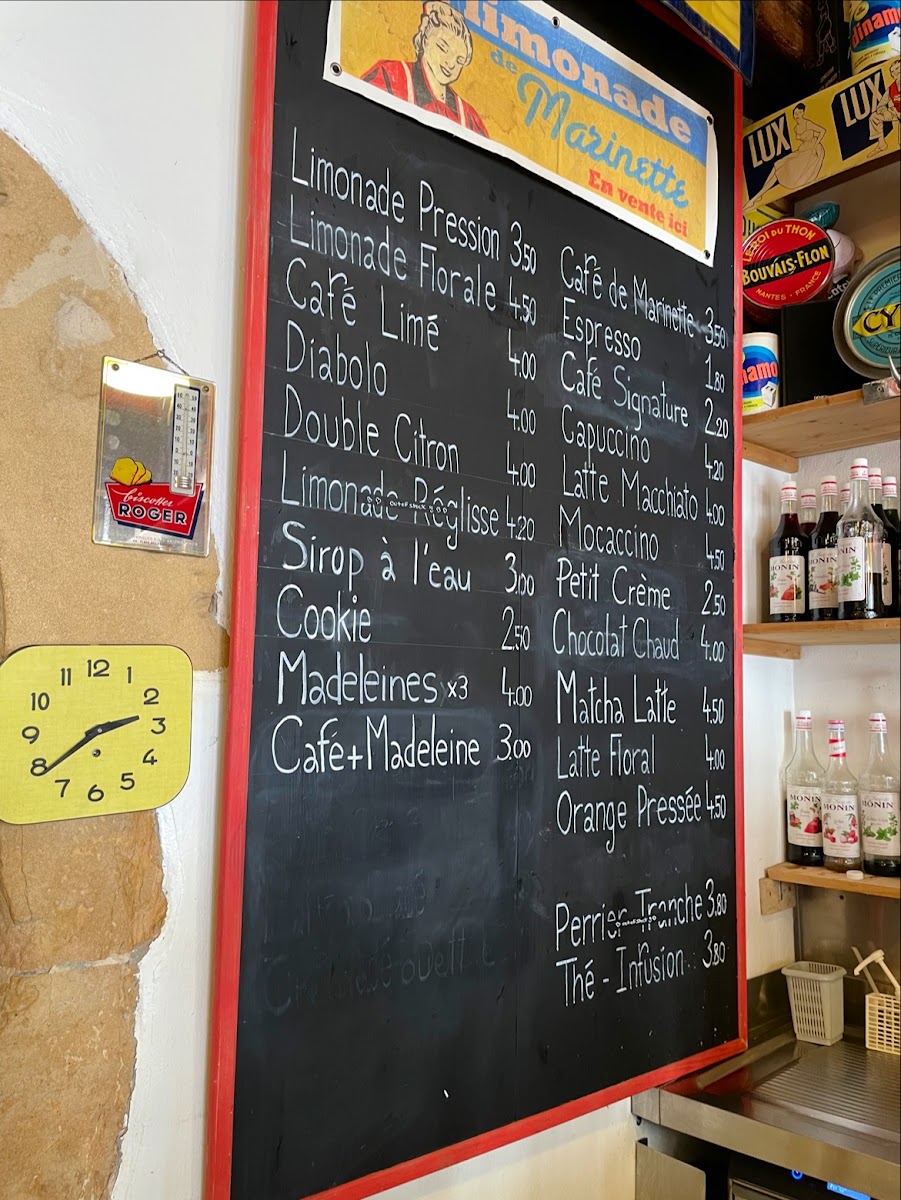 limonade
de
Marinette
En vente ici
Limonade Pression 3.50
Limonade Florale 4.50
Café Limé 4.00
Diabolo 4.00
Double Citron 4.00
Limonade Réglisse 4.20
OUT OF STOCK
Sirop à l'eau 3.00
Cookie 2.50
Madeleines x3 4.00
Café+Madeleine 3.00
Café de Marinette 3.50
Espresso 1.80
Café Signature 2.20
Capuccino 4.20
Latte Macchiato 4.00
Mocaccino 4.50
Petit Crème 2.50
Chocolat Chaud 4.00
Matcha Latte 4.50
Latte Floral 4.00
Orange Pressée 4.50
Perrier Tranche 3.80
Thé - Infusion 3.80
biscottes
ROGER
12
1
2
3
4
5
6
7
8
9
10
11
dinamo
LUX
LUX
LE ROI DU THON
BOUVAIS-FLON
NANTES - FRANCE
CY
inamo
MONIN
MONIN
MONIN
MONIN
MONIN
MONIN